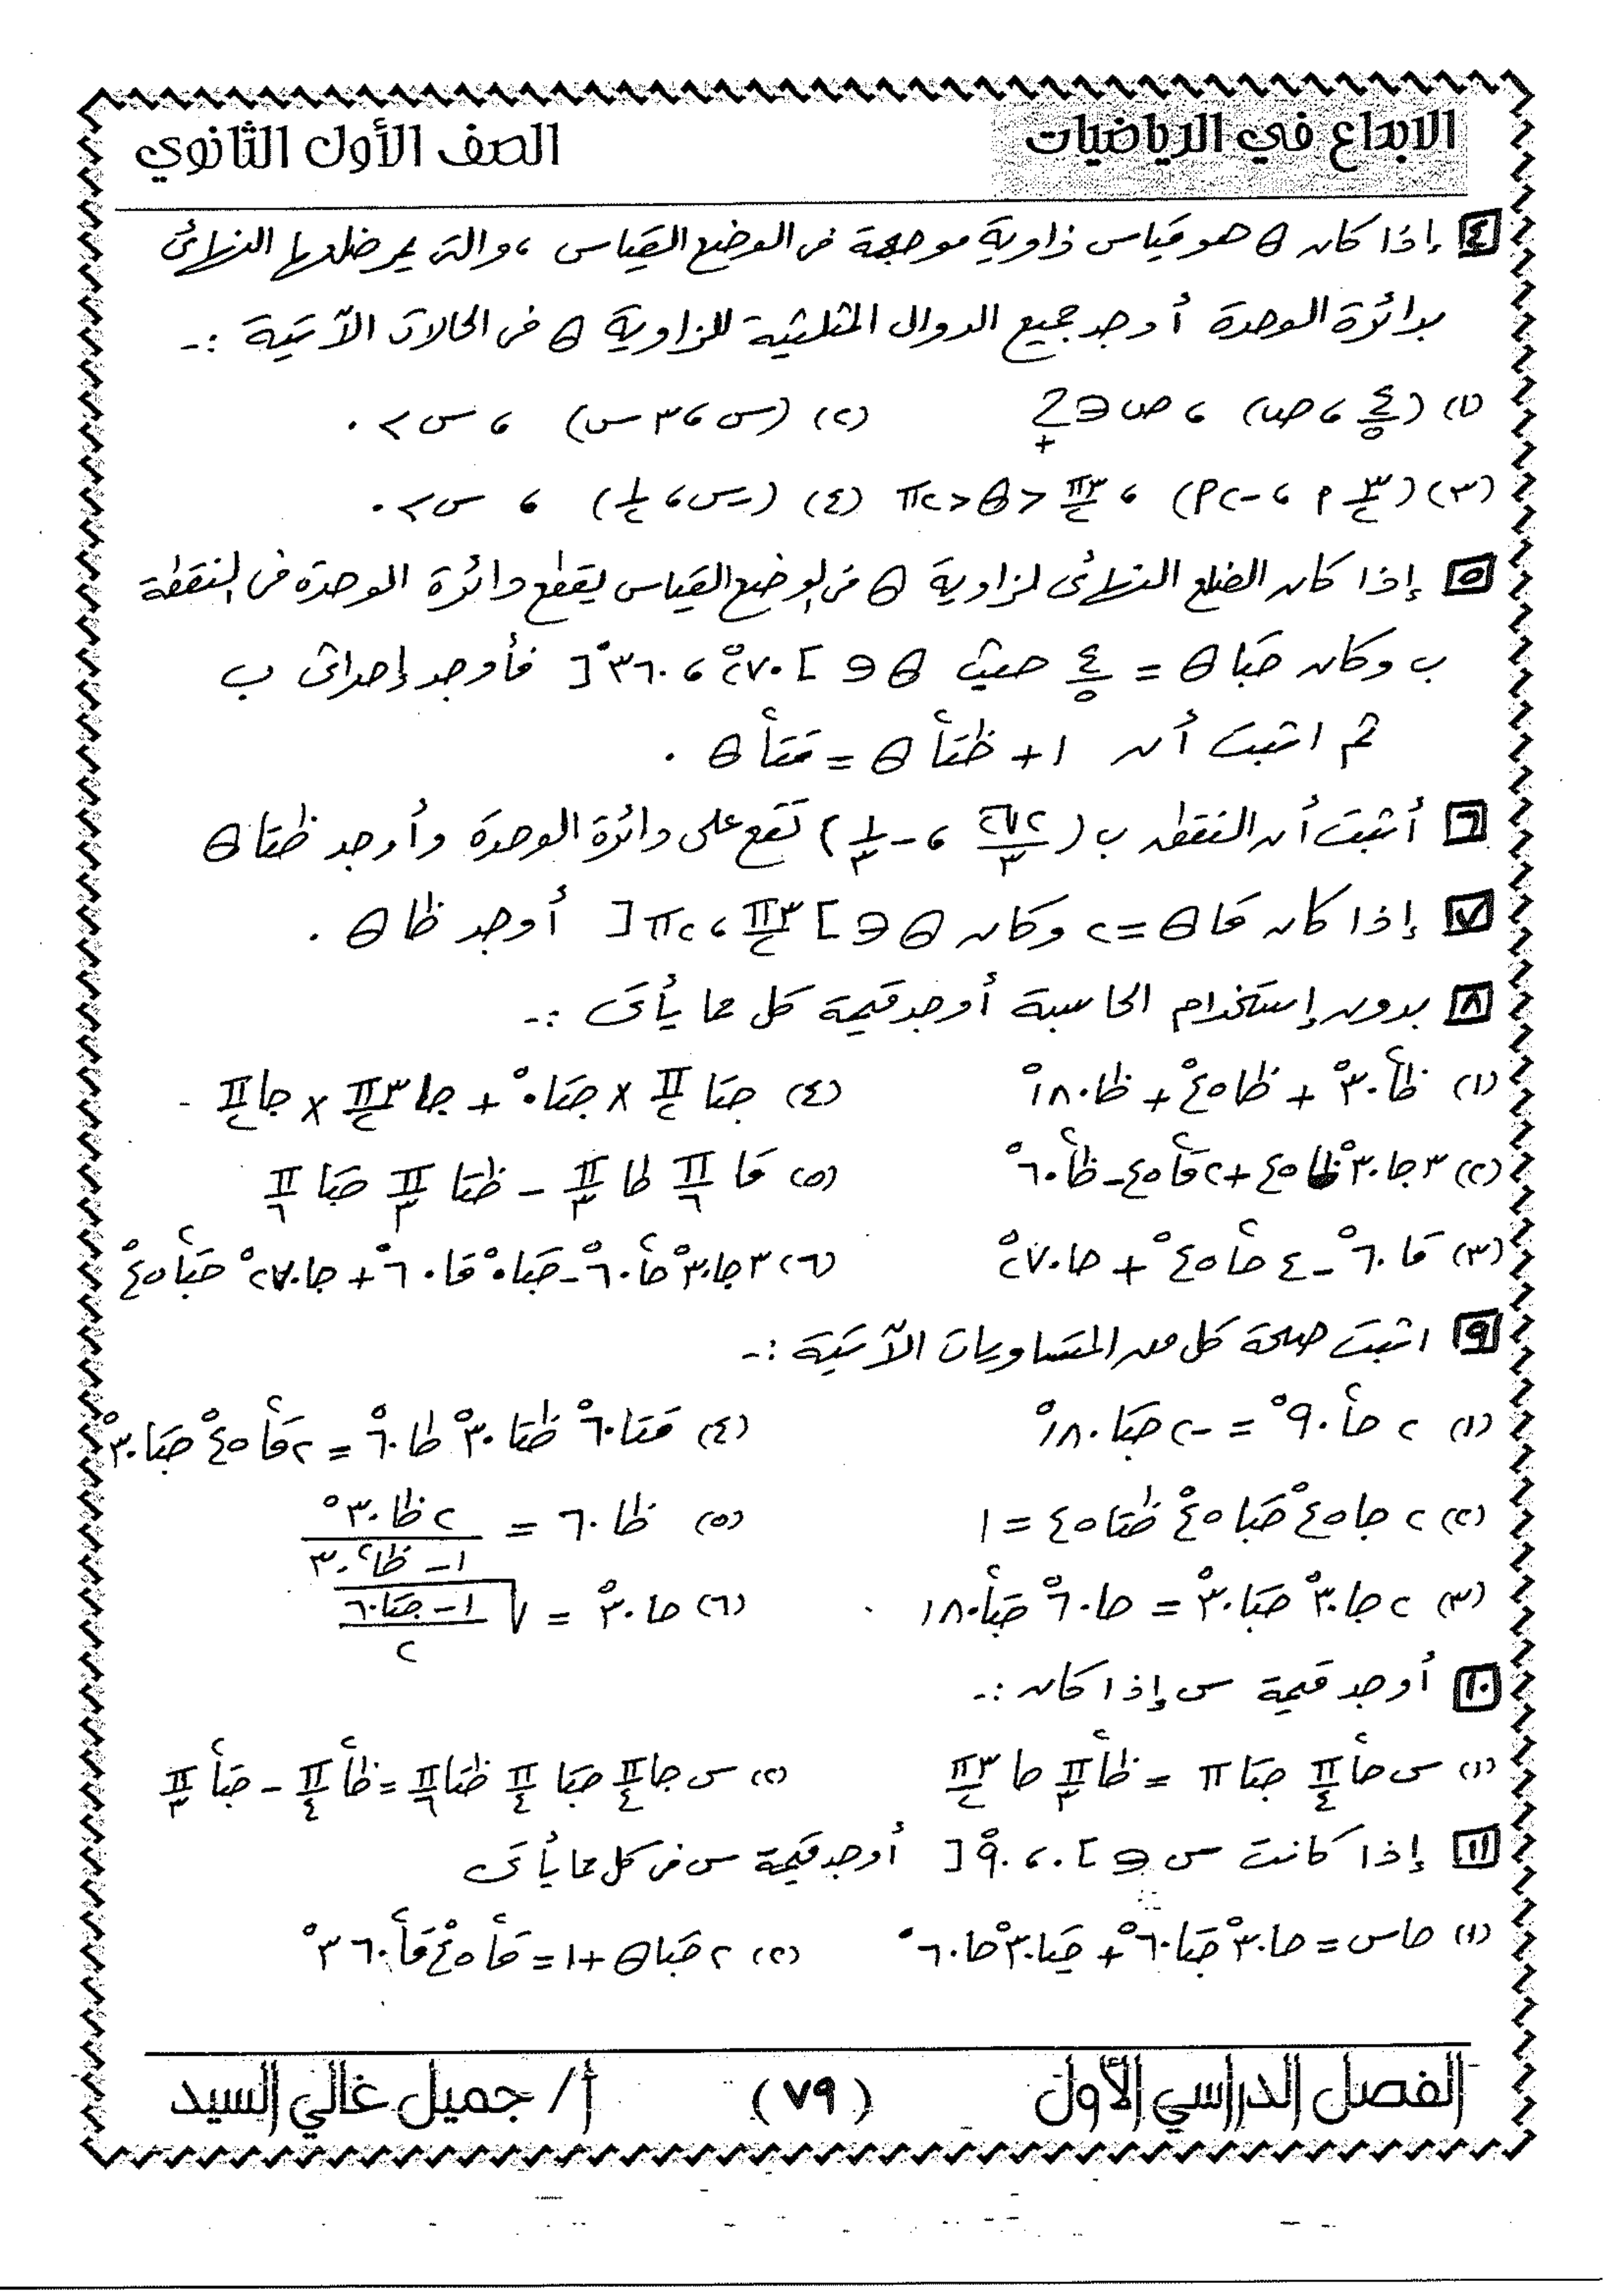 الابداع في الرياضيات
الصف الأول الثانوي
٤ إذا كان θ هو قياس زاوية موجهة فى الوضع القياسى ، والتى يمر ضلعها النهائى
بدائرة الوحدة أوجد جميع الدوال المثلثية للزاوية θ فى الحالات الآتية :-
(١) (٤/٥ ، ص) ، ص ∈ ح+ (٢) (س ، ٣س) ، س > ٠
(٣) (٣/٢ ٩ ، -٢٩) ، ٣π/٢ < θ < ٢π (٤) (-س ، ١/٢) ، س > ٠
٥ إذا كان الضلع النهائى لزاوية θ فى الوضع القياسى يقطع دائرة الوحدة فى النقطة
ب وكان جتا θ = ٤/٥ حيث θ ∈ ]٢٧٠° ، ٣٦٠°[ فأوجد إحداثى ب
ثم اثبت أن ١ + ظتا٢ θ = قتا٢ θ .
٦ أثبت أن النقطه ب (٢√٢/٣ ، -١/٣) تقع على دائرة الوحدة وأوجد ظتا θ
٧ إذا كان قا θ = ٢ وكان θ ∈ ]٣π/٢ ، ٢π[ أوجد ظا θ .
٨ بدون إستخدام الحاسبة أوجد قيمة كل مما يأتى :-
(١) ظا٢ ٣٠° + ظا ٤٥° + ظا ١٨٠° (٤) جتا π/٢ × جتا ٠° + جا ٣π/٢ × جا π/٢
(٢) ٣ جا ٣٠° ظا ٤٥ + ٢ قا٢ ٤٥ - ظا٢ ٦٠° (٥) قا π/٦ ظا π/٣ - ظتا π/٣ جتا π/٦
(٣) قا ٦٠° - ٤ جا٢ ٤٥° + جا ٢٧٠° (٦) ٣ جا ٣٠° جا٢ ٦٠° - جتا ٠° قا ٦٠° + جا ٢٧٠° جتا٢ ٤٥°
٩ اثبت صحة كل من المتساويات الآتية :-
(١) ٢ جا٢ ٩٠° = -٢ جتا ١٨٠° (٤) قتا ٦٠° ظتا ٣٠° ظا ٦٠° = ٢ قا٢ ٤٥° جتا ٣٠°
(٢) ٢ جا ٤٥° جتا ٤٥° ظتا ٤٥ = ١ (٥) ظا ٦٠ = ٢ ظا ٣٠° / ١ - ظا٢ ٣٠
(٣) ٢ جا ٣٠° جتا ٣٠° = جا ٦٠° جتا٢ ١٨٠ (٦) جا ٣٠° = √(١ - جتا ٦٠ / ٢)
١٠ أوجد قيمة س إذا كان :-
(١) س جا٢ π/٤ جتا π = ظا٢ π/٣ جا ٣π/٢ (٢) س جا π/٤ جتا π/٤ ظتا π/٦ = ظا٢ π/٤ - جتا٢ π/٣
١١ إذا كانت س ∈ [٠ ، ٩٠°[ أوجد قيمة س فى كل مما يأتى
(١) جا س = جا ٣٠° جتا ٦٠° + جتا ٣٠° جا ٦٠° (٢) ٢ جتا θ + ١ = قا٢ ٤٥° قا٢ ٣٦٠°
الفصل الدراسي الأول
( ٧٩ )
أ/ جميل غالي السيد